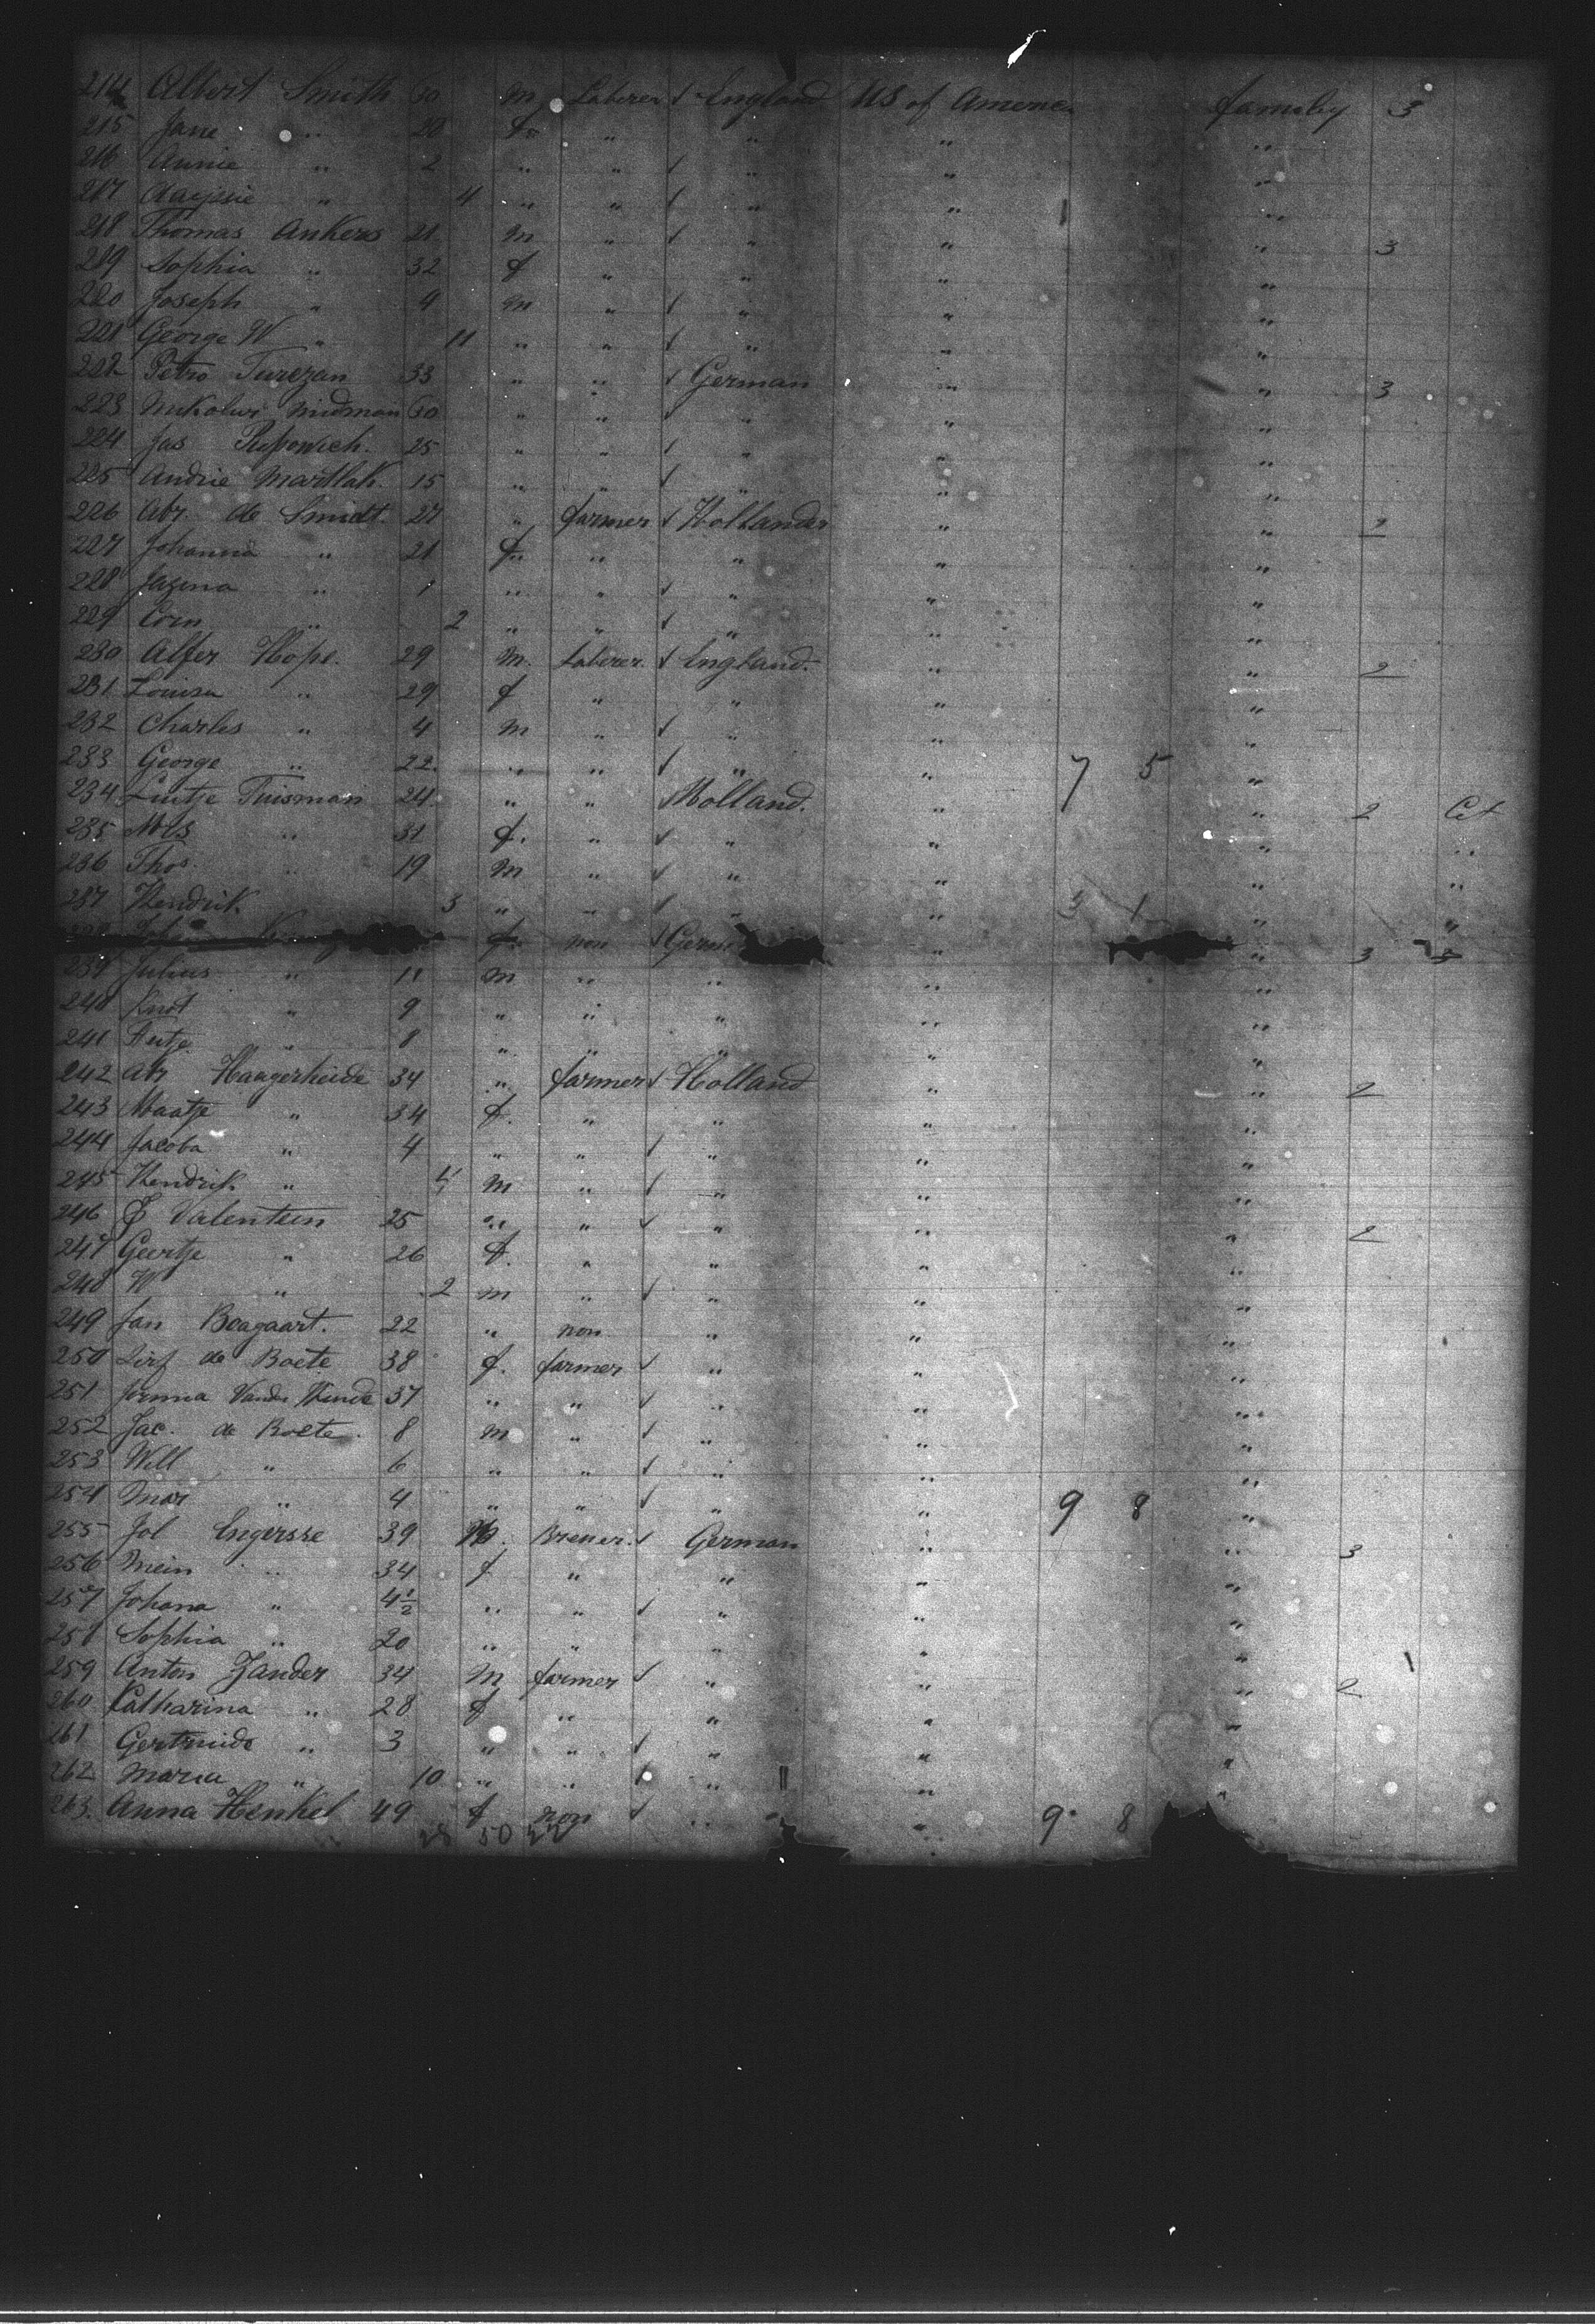 214 Albert Smith 30 m Laberer √ England US of America family 3
215 Jane " 28 f " " " "
216 Annie " 2 " " √ " " "
217 " 4 " " √ " " "
218 Thomas Ankers 21 m " √ " " " 3
219 Sophia " 32 f " " " "
220 Joseph " 4 m " √ " " "
221 George W " 11 " " √ " " "
222 Petro Turezan 33 " " √ German " " 3
223 30 " " √ " " "
224 Jas 25 " " √ " " "
225 Andrie Martlak. 15 " " √ " " "
226 Abr. de Smidt. 27 " farmer √ Hollander " " 2
227 Johanna " 21 f. " " " "
228 Jazina " 1 " " √ " " "
229 Corn " 2 " " √ " " "
230 Alfer Hope. 29 m. Laberer. √ England. " " 2
231 Louisa " 29 f " " " "
232 Charles " 4 m " √ " " "
233 George " 22 " " √ " " 7 5 "
234 Tuisman 24 " " √ Holland. " " 2
235 Mrs " 31 f. " √ " " " "
236 Thos. " 19 m " √ " " " "
237 Hendrik 3 " " √ " " 3 1 " "
f. non √ " 3
239 Julius " 11 m " " " "
240 Knot " 9 " " " " "
241 " 8 " " " " "
242 Abr Haagerheide 34 " farmer √ Holland " " 2
243 Maatje " 34 f. " " " "
244 Jacoba " 4 " " √ " " "
245 Hendrik " 4 m " √ " " "
246 Valenteen 25 " " √ " " " 2
247 Geertje " 26 f. " " " "
248 W " 2 m " √ " " "
249 Jan Boagaart. 22 " non " " "
250 de Boete 38 f. farmer √ " " "
251 37 " " √ " " "
252 Jac. de Boete. 8 m " √ " " "
253 Will " 6 " " √ " " "
254 Mar " 4 " " √ " " 9 8 "
255 Jol Engersse 39 M. Brewer. √ German " " 3
256 Mein " 34 f " " " "
257 Johana " 4½ " " √ " " "
258 Sophia " 20 " " " " "
259 Anton Zander 34 M farmer √ " " " 2
260 Katharina " 28 f " " " "
261 Gertruide " 3 " " √ " " "
262 Maria " 10 " " √ " " "
263. Anna Henkel 49 f non √ " " 9 8
28 50 22